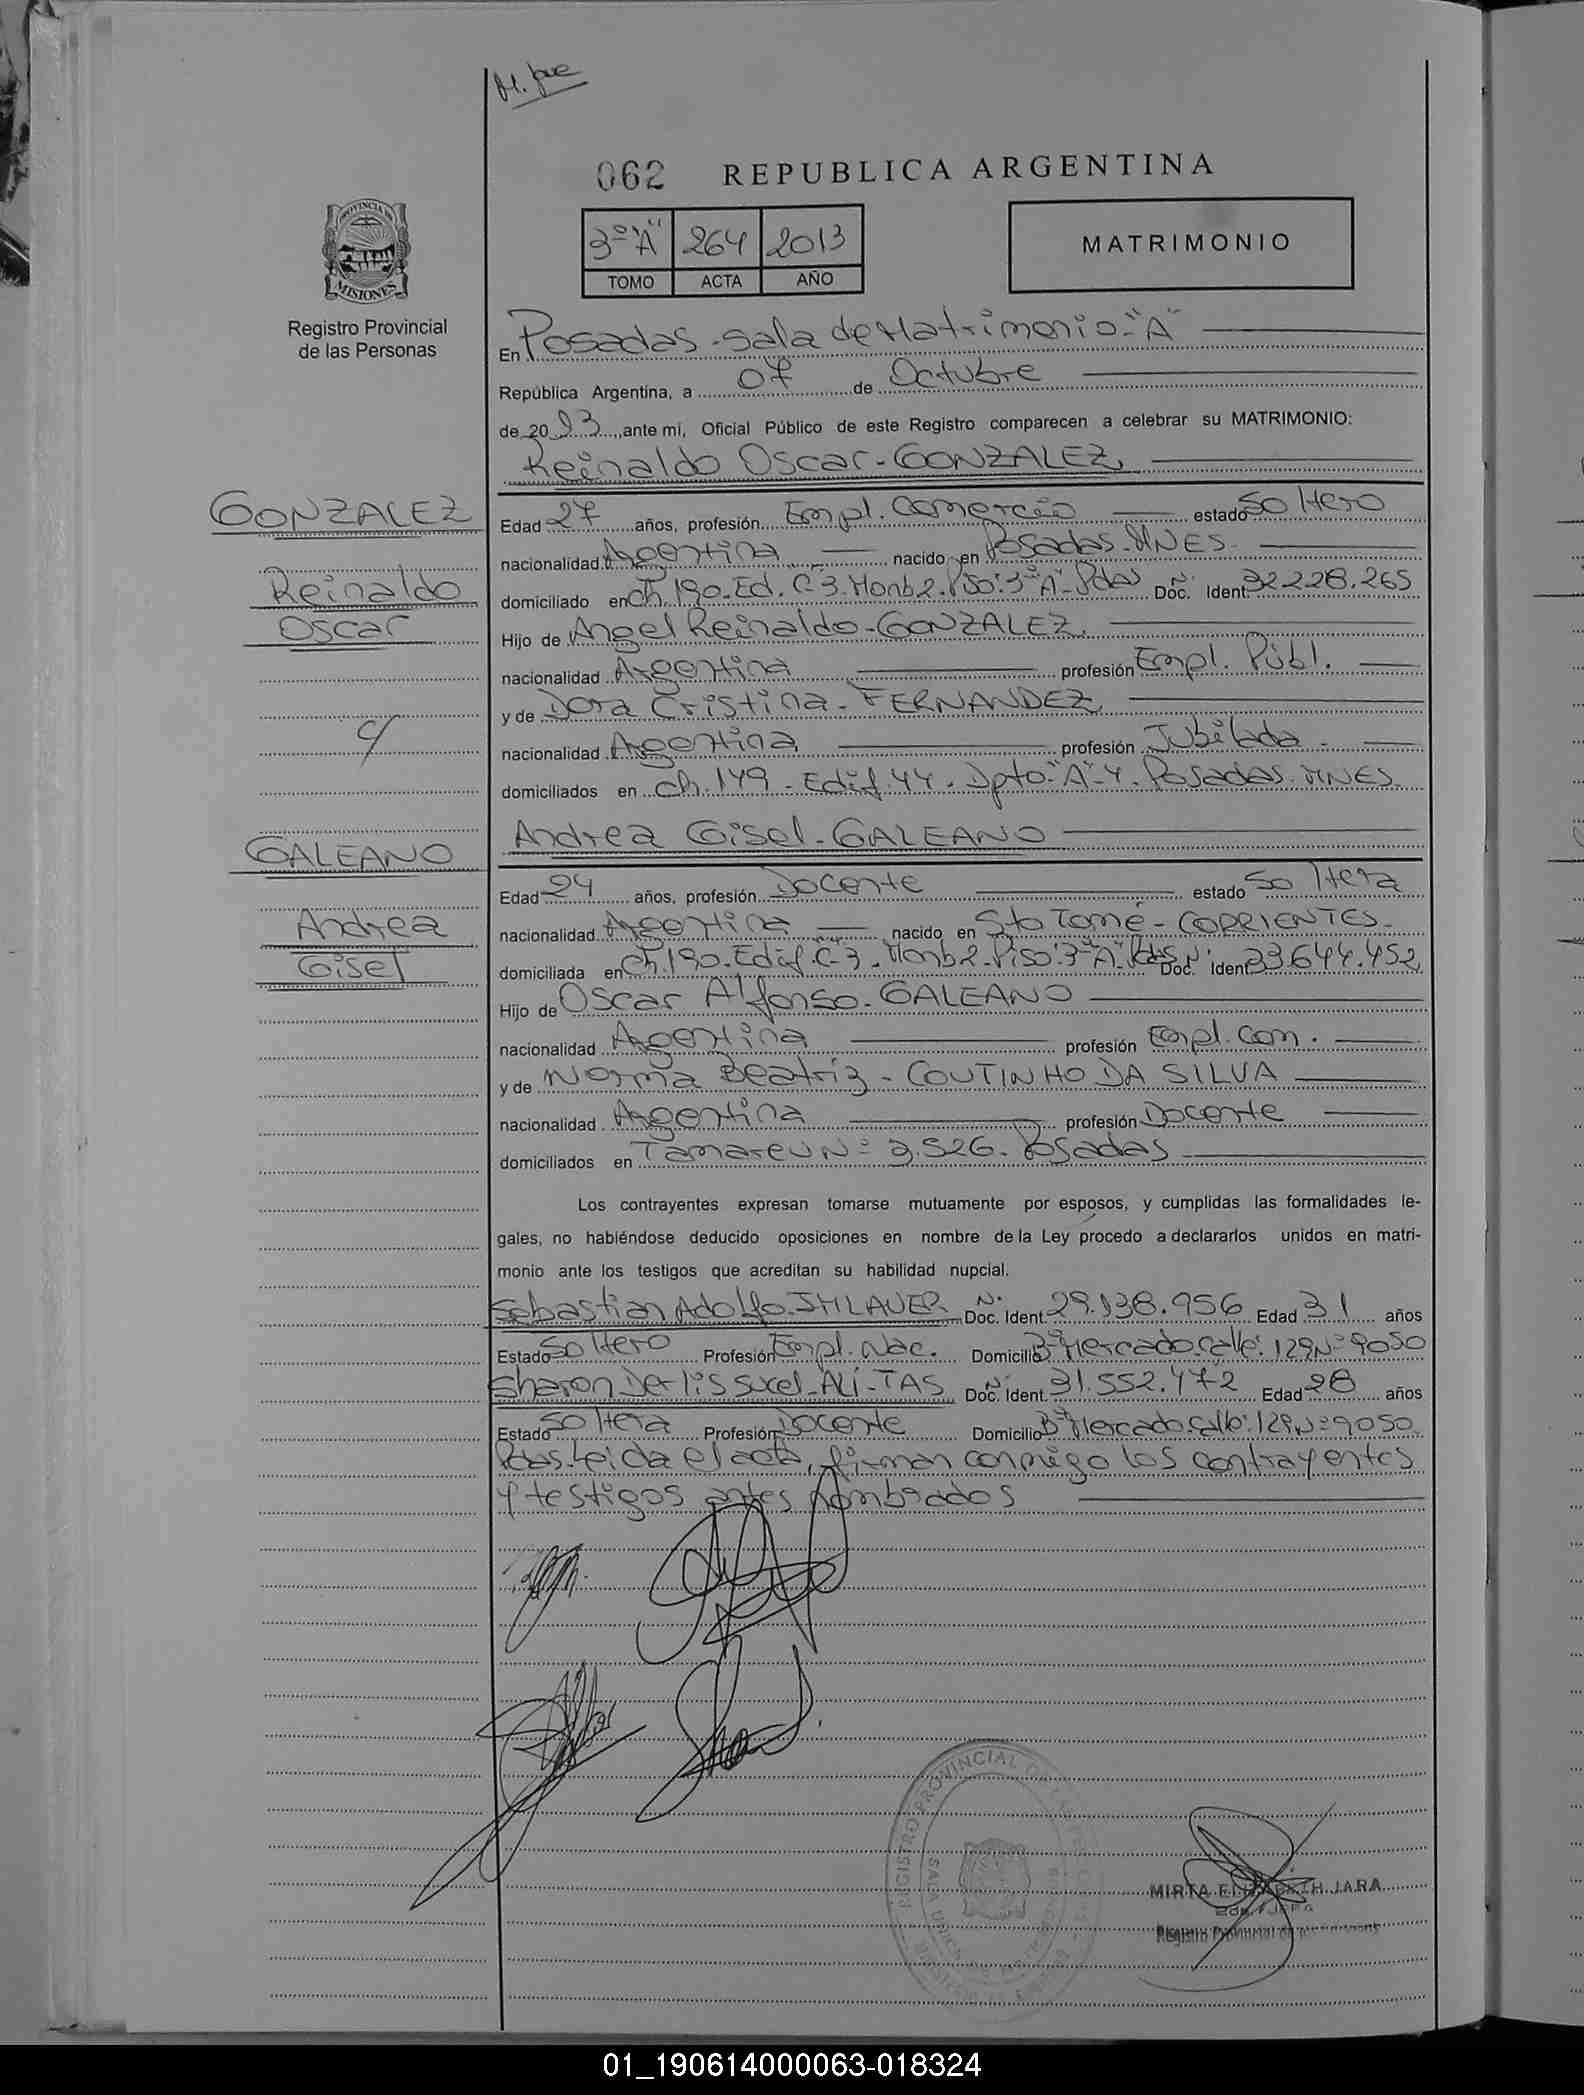 062 REPUBLICA ARGENTINA
PROVINCIA DE
MISIONES
Registro Provincial
de las Personas
3º "A" 264 2013
TOMO ACTA AÑO
MATRIMONIO
En Posadas - Sala de Matrimonio - "A"
República Argentina, a 07 de Octubre
de 2013, ante mi, Oficial Público de este Registro comparecen a celebrar su MATRIMONIO:
Reinaldo Oscar - GONZALEZ
GONZALEZ
Reinaldo
Oscar
c/
GALEANO
Andrea
Gisel
Edad 27 años, profesión Empl. Comercio estado Soltero
nacionalidad Argentina nacido en Posadas. MNES.
domiciliado en Ch. 190. Ed. C-3. Monb 2. Piso: 3º "A" - Pdas Nº Doc. Ident. 32.228.265
Hijo de Angel Reinaldo - GONZALEZ.
nacionalidad Argentina profesión Empl. Públ.
y de Dora Cristina - FERNANDEZ
nacionalidad Argentina profesión Jubilada
domiciliados en Ch. 149 - Edif. 44. Dpto "A" - 4. Posadas. MNES.
Andrea Gisel - GALEANO
Edad 24 años, profesión Docente estado Soltera
nacionalidad Argentina nacido en Sto Tomé - CORRIENTES.
domiciliada en Ch. 190. Edif. C-3. Monb 2. Piso: 3º "A" Pdas Nº Doc. Ident. 33.644.452
Hijo de Oscar Alfonso - GALEANO
nacionalidad Argentina profesión Empl. Com.
y de Norma Beatriz - COUTINHO DA SILVA
nacionalidad Argentina profesión Docente
domiciliados en Tamareu Nº 3.526. Posadas
Los contrayentes expresan tomarse mutuamente por esposos, y cumplidas las formalidades le-
gales, no habiéndose deducido oposiciones en nombre de la Ley procedo a declararlos unidos en matri-
monio ante los testigos que acreditan su habilidad nupcial.
Sebastian Adolfo. IMLAUER Nº Doc. Ident. 29.138.956 Edad 31 años
Estado Soltero Profesión Empl. Nac. Domicilio Bº Mercado. Calle: 129 Nº 9050
Sharon Derlis Sucel - ALI - TAS Nº Doc. Ident. 31.552.472 Edad 28 años
Estado Soltera Profesión Docente Domicilio Bº Mercado. Calle: 129 Nº 9050.
Pdas. Leida el acta, firman conmigo los contrayentes
y testigos antes nombrados
REGISTRO PROVINCIAL DE LAS PERSONAS
MIRTA ELIZABETH JARA
Registro Provincial de las Personas
01_190614000063-018324